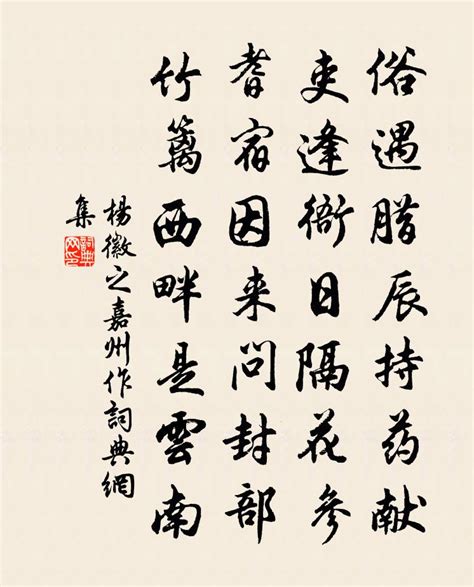 俗遇腊辰持药献
吏逢衙日隔花參
耆宿因来问封部
竹篱西畔是雲南
楊徽之嘉州作詞典網
集
詞典网印